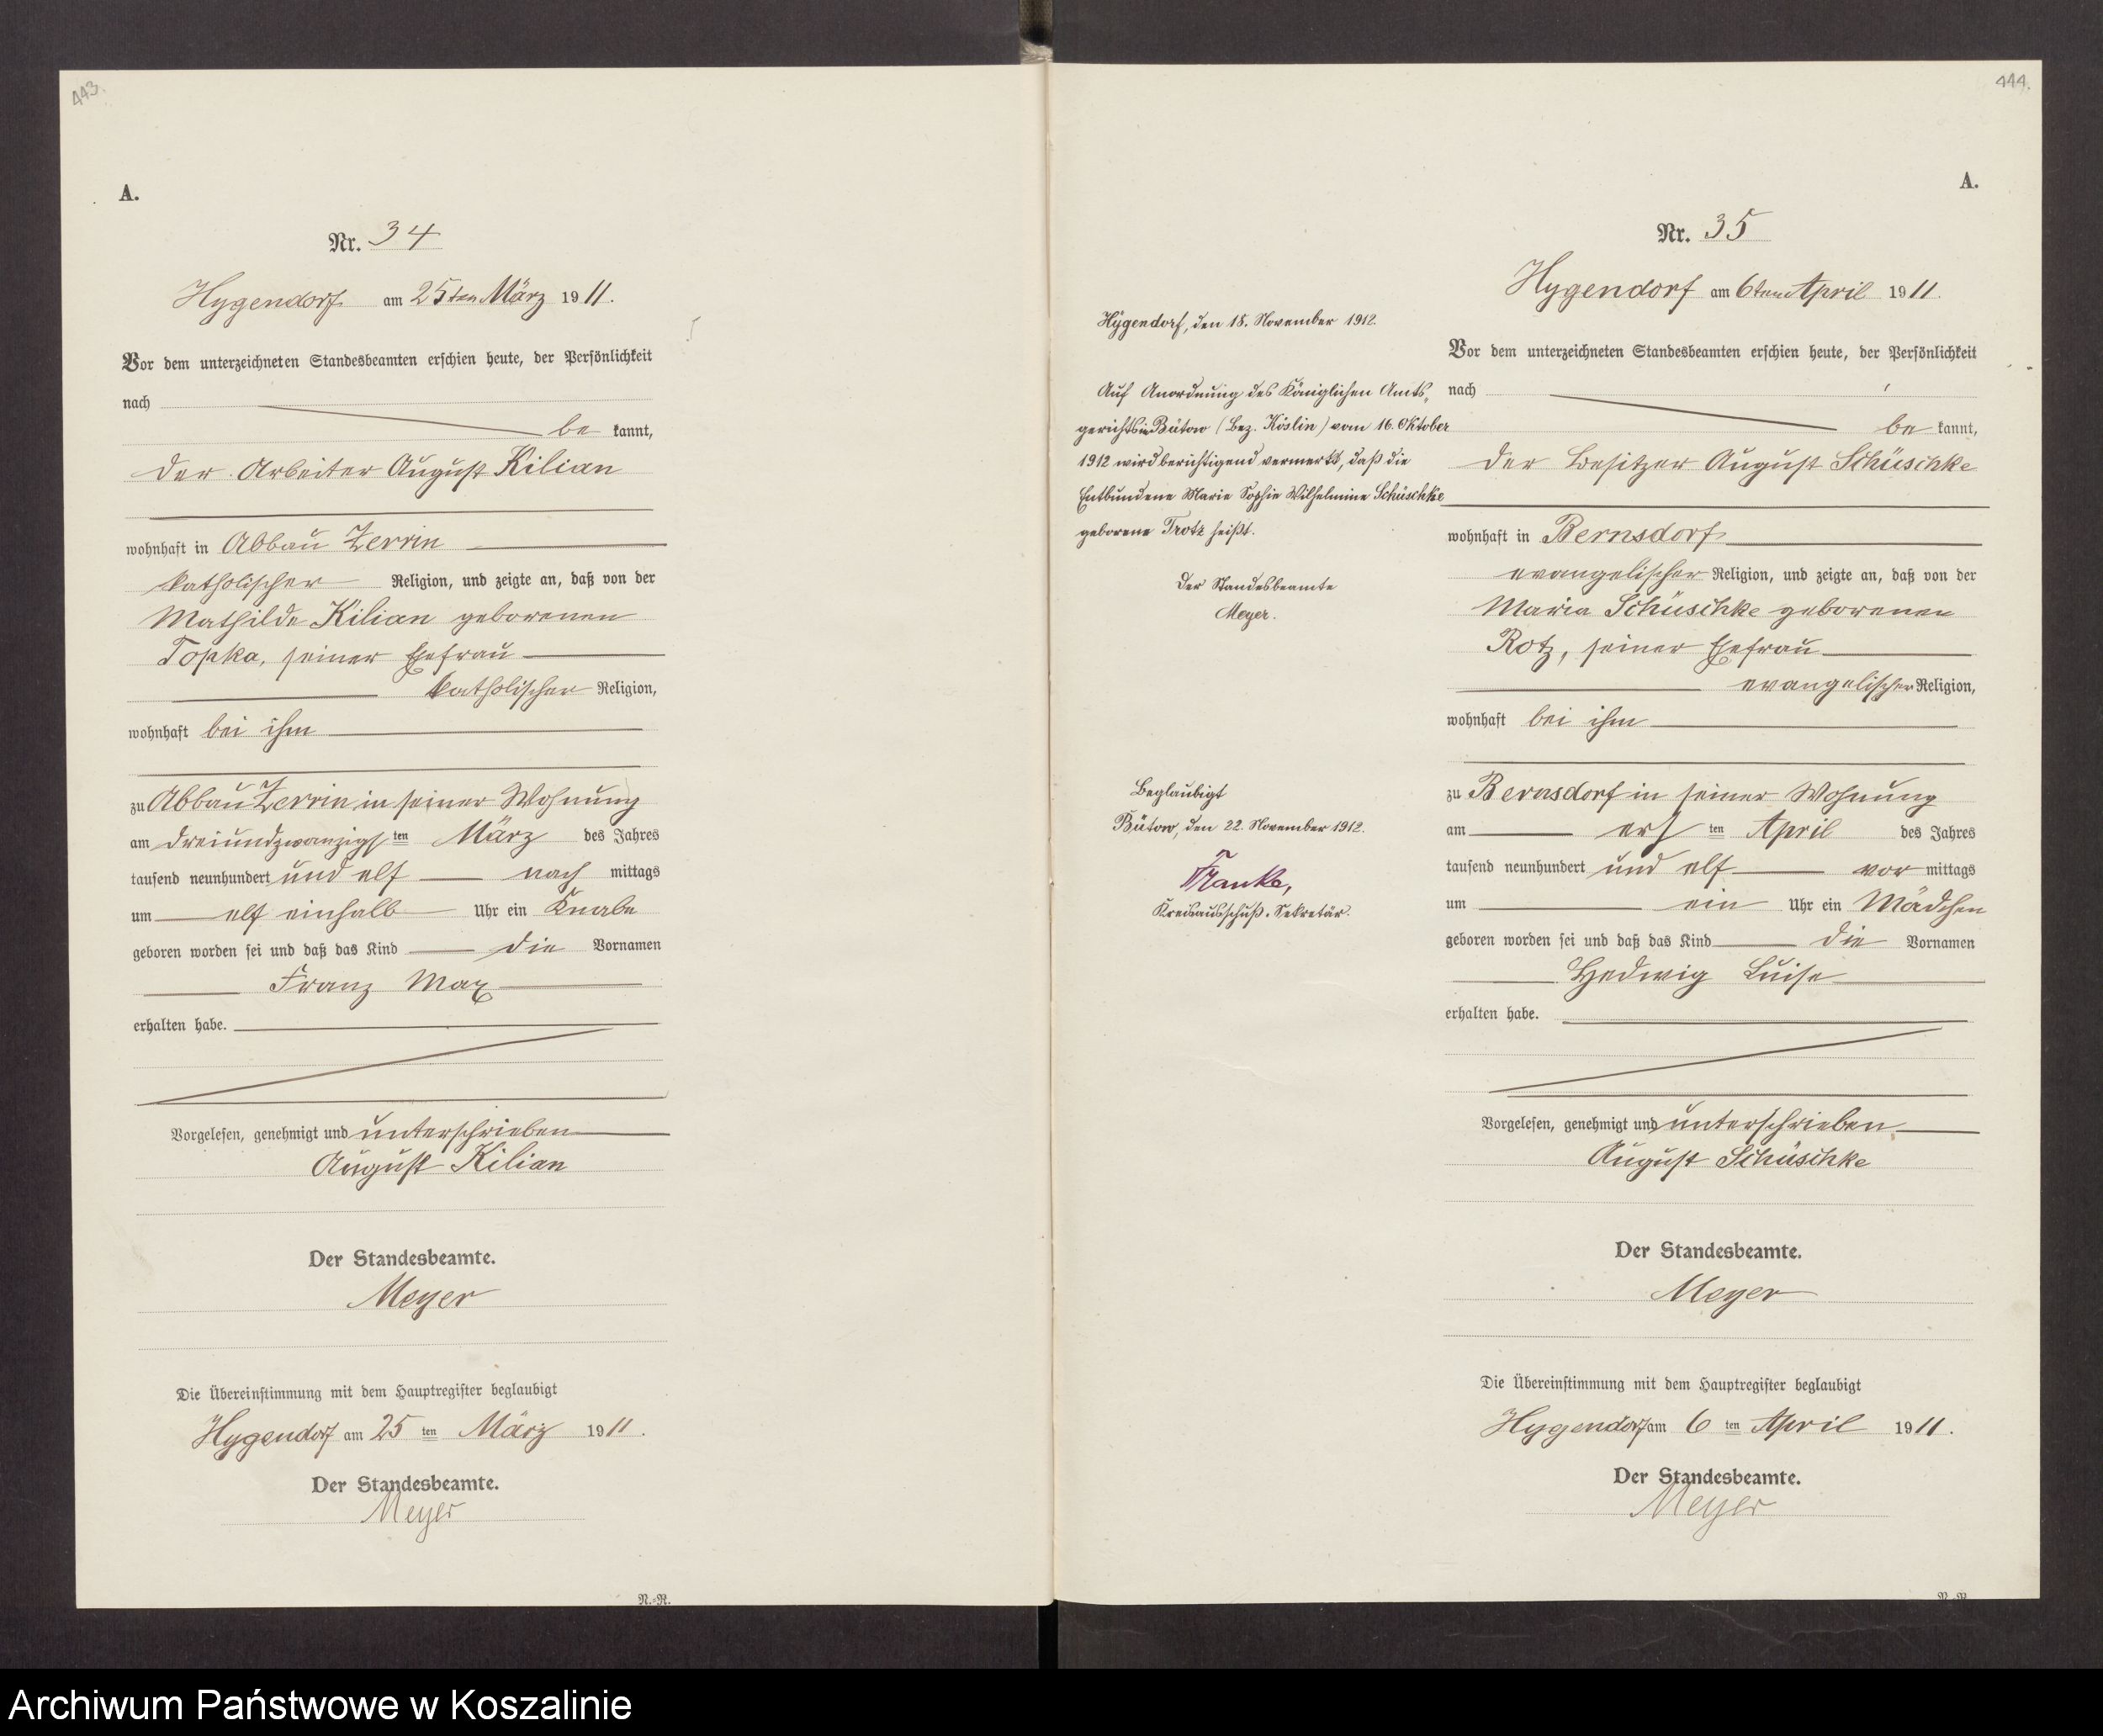 443.
A.
Nr. 34
Hygendorf am 25ten März 1911.
Vor dem unterzeichneten Standesbeamten erschien heute, der Persönlichkeit
nach
be kannt,
der Arbeiter August Kilian
wohnhaft in Abbau Zerrin
katholischer Religion, und zeigte an, daß von der
Mathilde Kilian geborenen
Topka, seiner Ehefrau
katholischer Religion,
wohnhaft bei ihm
zu Abbau Zerrin in seiner Wohnung
am dreiundzwanzigsten März des Jahres
tausend neunhundert und elf nach mittags
um elf einhalb Uhr ein Knabe
geboren worden sei und daß das Kind die Vornamen
Franz Max
erhalten habe.
Vorgelesen, genehmigt und unterschrieben
August Kilian
Der Standesbeamte.
Meyer
Die Übereinstimmung mit dem Hauptregister beglaubigt
Hygendorf am 25 ten März 1911.
Der Standesbeamte.
Meyer
N.-R.
444.
A.
Nr. 35
Hygendorf am 6ten April 1911.
Vor dem unterzeichneten Standesbeamten erschien heute, der Persönlichkeit
nach
be kannt,
der Besitzer August Schüschke
wohnhaft in Bernsdorf
evangelischer Religion, und zeigte an, daß von der
Maria Schüschke geborenen
Rotz, seiner Ehefrau
evangelischer Religion,
wohnhaft bei ihm
zu Bernsdorf in seiner Wohnung
am ersten April des Jahres
tausend neunhundert und elf vor mittags
um ein Uhr ein Mädchen
geboren worden sei und daß das Kind die Vornamen
Hedwig Luise
erhalten habe.
Vorgelesen, genehmigt und unterschrieben
August Schüschke
Der Standesbeamte.
Meyer
Die Übereinstimmung mit dem Hauptregister beglaubigt
Hygendorf am 6 ten April 1911.
Der Standesbeamte.
Meyer
N.-R.
Hygendorf, den 18. November 1912.
Auf Anordnung des Königlichen Amts-
gerichts in Bütow (Bez. Köslin) vom 16. Oktober
1912 wird berichtigend vermerkt, daß die
Entbundene Marie Sophie Wilhelmine Schüschke
geborene Trotz heißt.
Der Standesbeamte
Meyer.
Beglaubigt
Bütow, den 22. November 1912.
Franke,
Kreisausschuß-Sekretär.
Archiwum Państwowe w Koszalinie